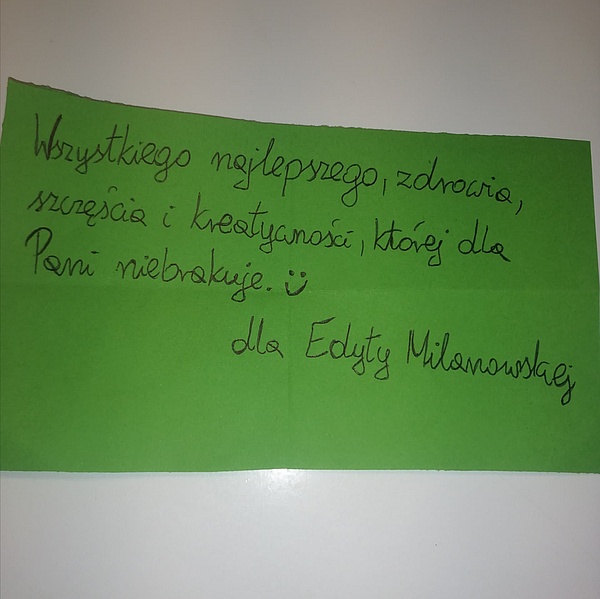 Wszystkiego najlepszego, zdrowia,
szczęścia i kreatywności, której dla
Pani niebrakuje. :)
dla Edyty Milanowskiej